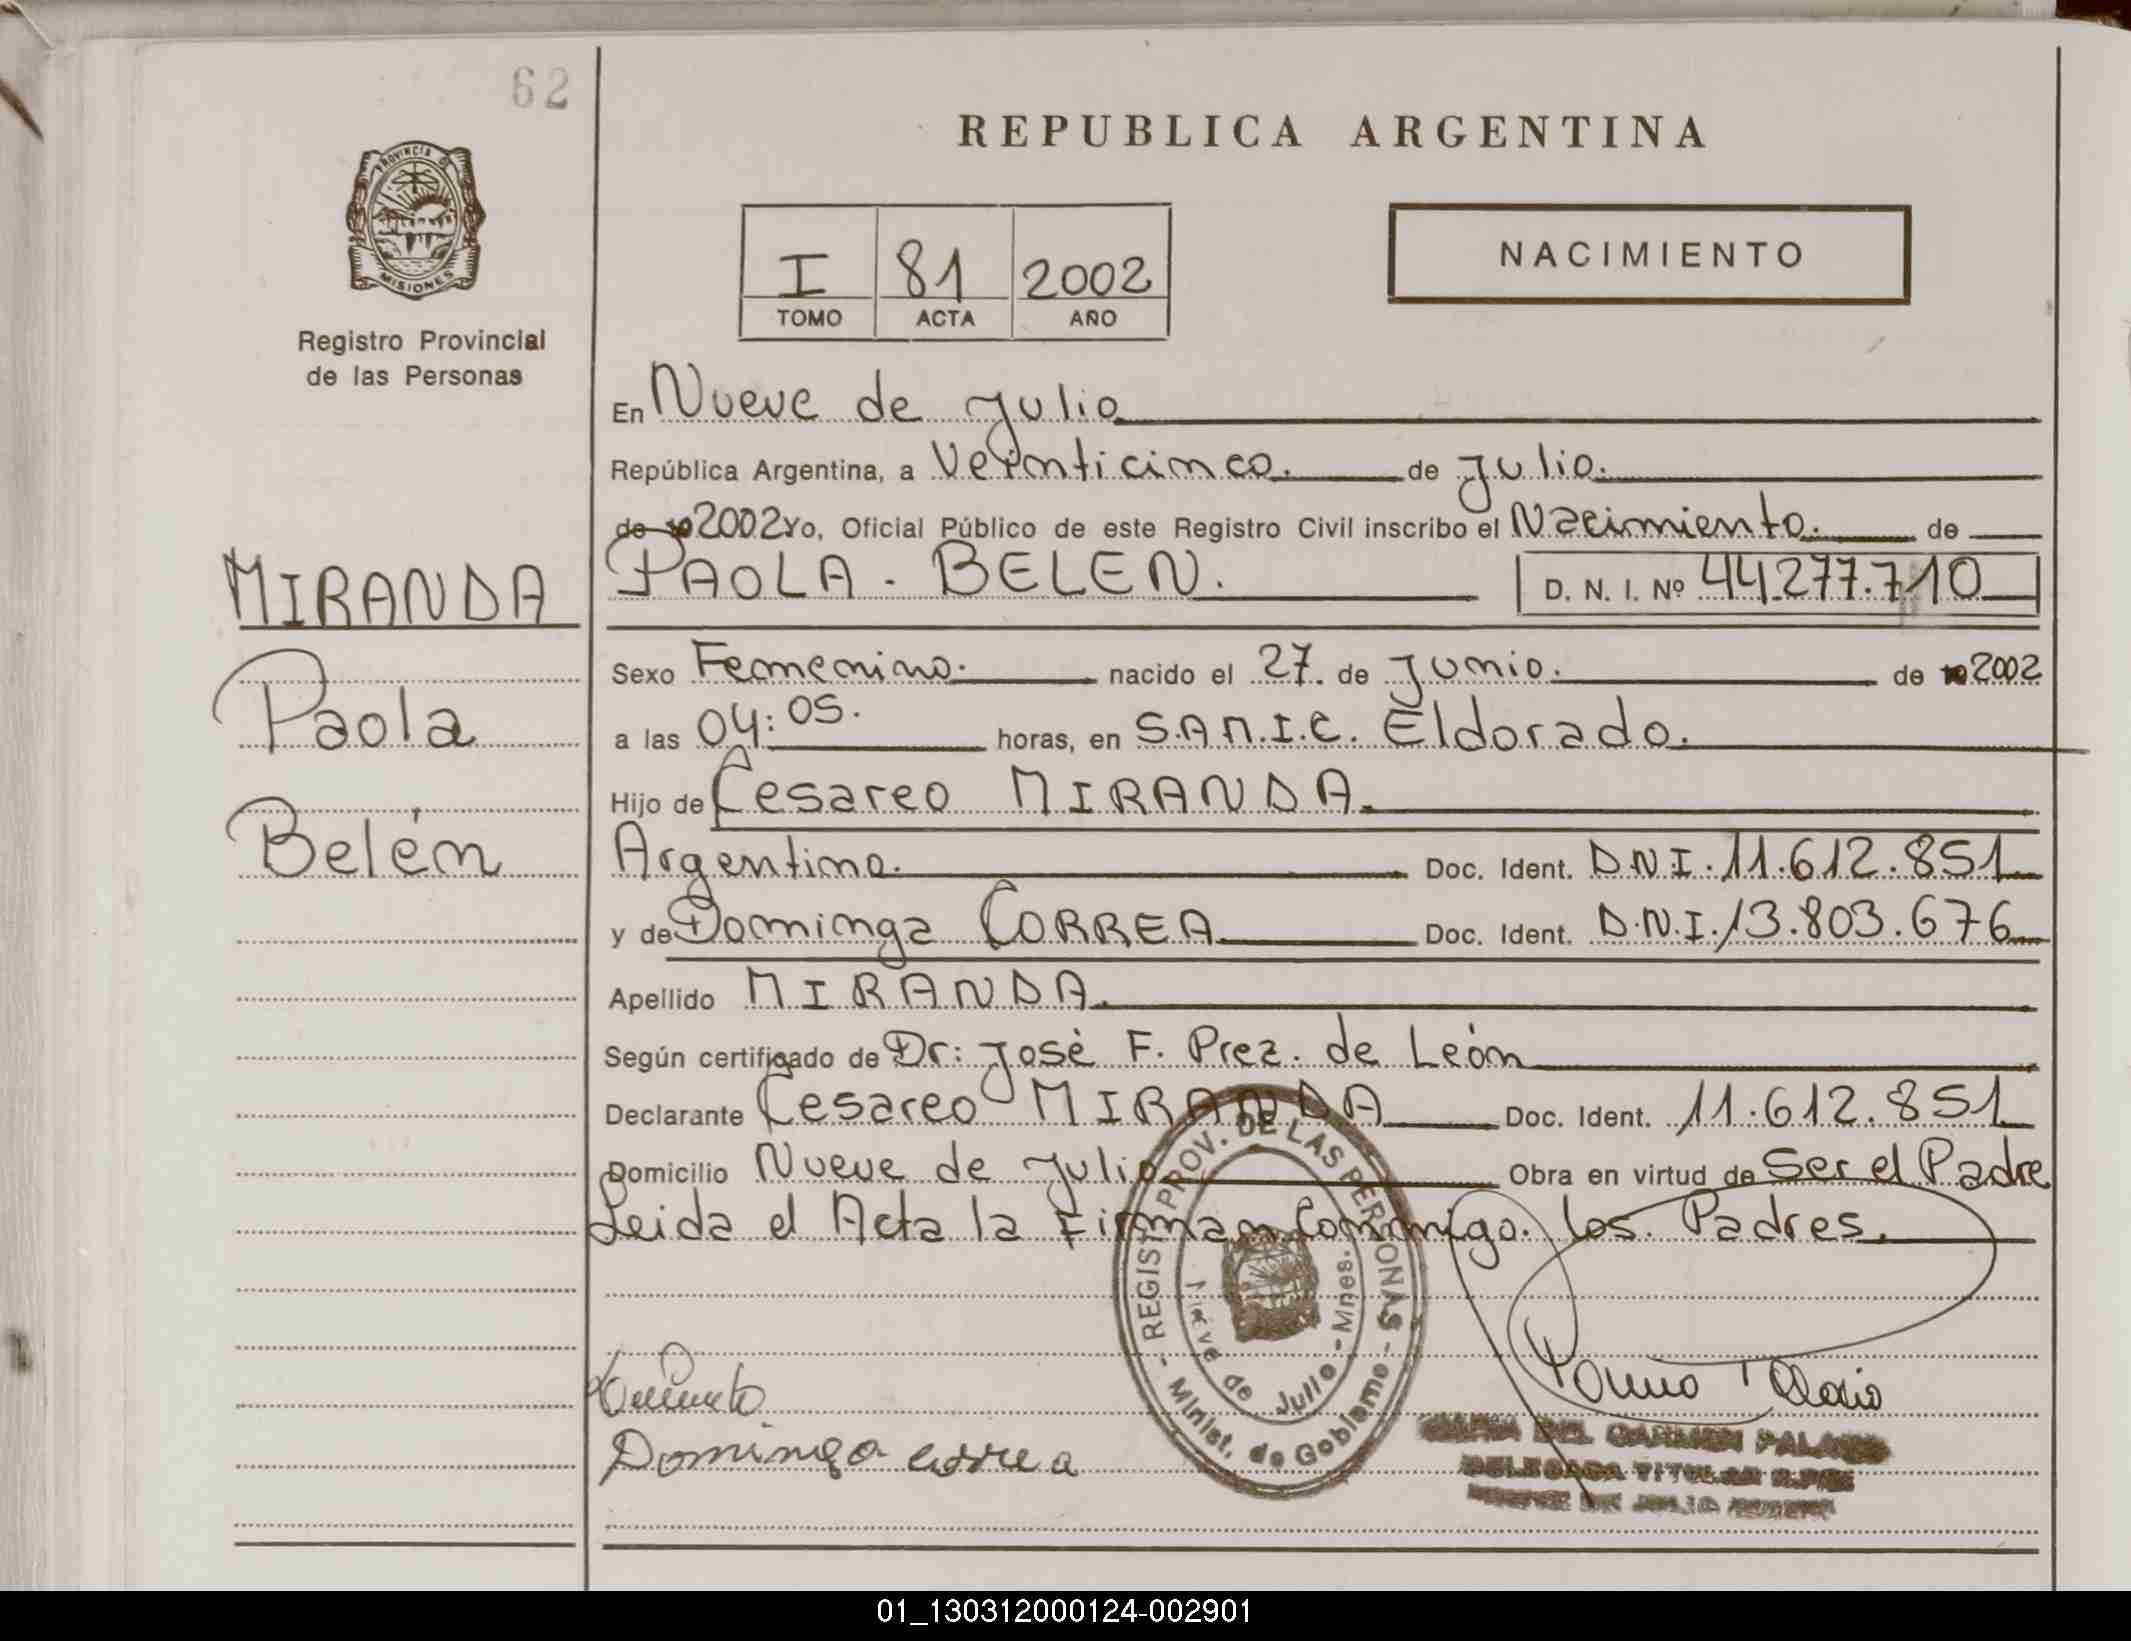 62
REPUBLICA ARGENTINA
PROVINCIA DE
MISIONES
Registro Provincial
de las Personas
I 81 2002
TOMO ACTA AÑO
NACIMIENTO
En Nueve de Julio
República Argentina, a Veinticinco. de Julio.
de 2002 Yo, Oficial Público de este Registro Civil inscribo el Nacimiento. de
MIRANDA
Paola
Belén
PAOLA - BELEN. D. N. I. Nº 44.277.710
Sexo Femenino. nacido el 27. de Junio. de 2002
a las 04:05. horas, en S.A.M.I.C. Eldorado.
Hijo de Cesareo MIRANDA.
Argentino. Doc. Ident. D.N.I. 11.612.851
y de Dominga CORREA Doc. Ident. D.N.I. 13.803.676
Apellido MIRANDA.
Según certificado de Dr: José F. Prez. de León
Declarante Cesareo MIRANDA Doc. Ident. 11.612.851
Domicilio Nueve de Julio Obra en virtud de Ser el Padre
Leida el Acta la Firman Conmigo. los. Padres.
- REGIST. PROV. DE LAS PERSONAS -
Minist. de Gobierno
Nueve de Julio - Mnes.
Dominga correa
DEL CARMEN
DELEGADA TITULAR
DE JULIO
01_130312000124-002901